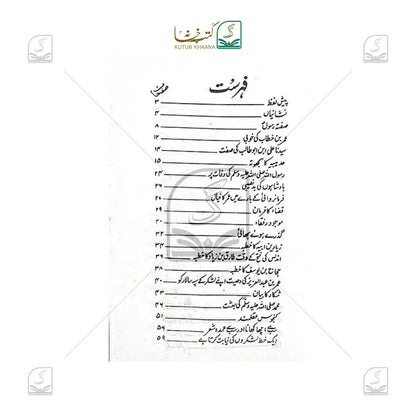 کتب خانہ
KUTUB KHAANA
فہرست
پیش لفظ ۳
نشانیاں ۴
صفتہ رسولؐ ۸
عمر بن خطاب کی خوبی ۱۲
سیدنا علی ابن ابو طالب کی صفت ۱۴
حدیبیہ کا سمجھوتہ ۱۵
رسول اللہ صلی اللہ علیہ وسلم کی وفات پر ۲۴
بادشاہوں کی بدنصیبی ۲۶
فرمانروائی کے بارے میں عمر کا خیال ۲۷
قضاء کا فرمان ۲۹
موجود رفقاء ۳۰
گذرے ہوئے بھائی ۳۲
زیاد بن ابیہ کا خطبہ ۳۴
اندلس کی فتح کے وقت طارق بن زیاد کا خطبہ ۳۶
حجاج بن یوسف کا خطبہ ۳۸
عمر بن عبدالعزیز کی وصیت اپنے لشکر کے سپہ سالار کو ۴۰
شکار کا بیان ۴۳
محمد صلی اللہ علیہ وسلم کی بعثت ۴۶
کنجوس عقلمند ۵۱
سب سے اچھا کھانا اور سب سے عمدہ شعر ۵۶
ایک خط لشکروں کی نیابت کرتا ہے ۵۹